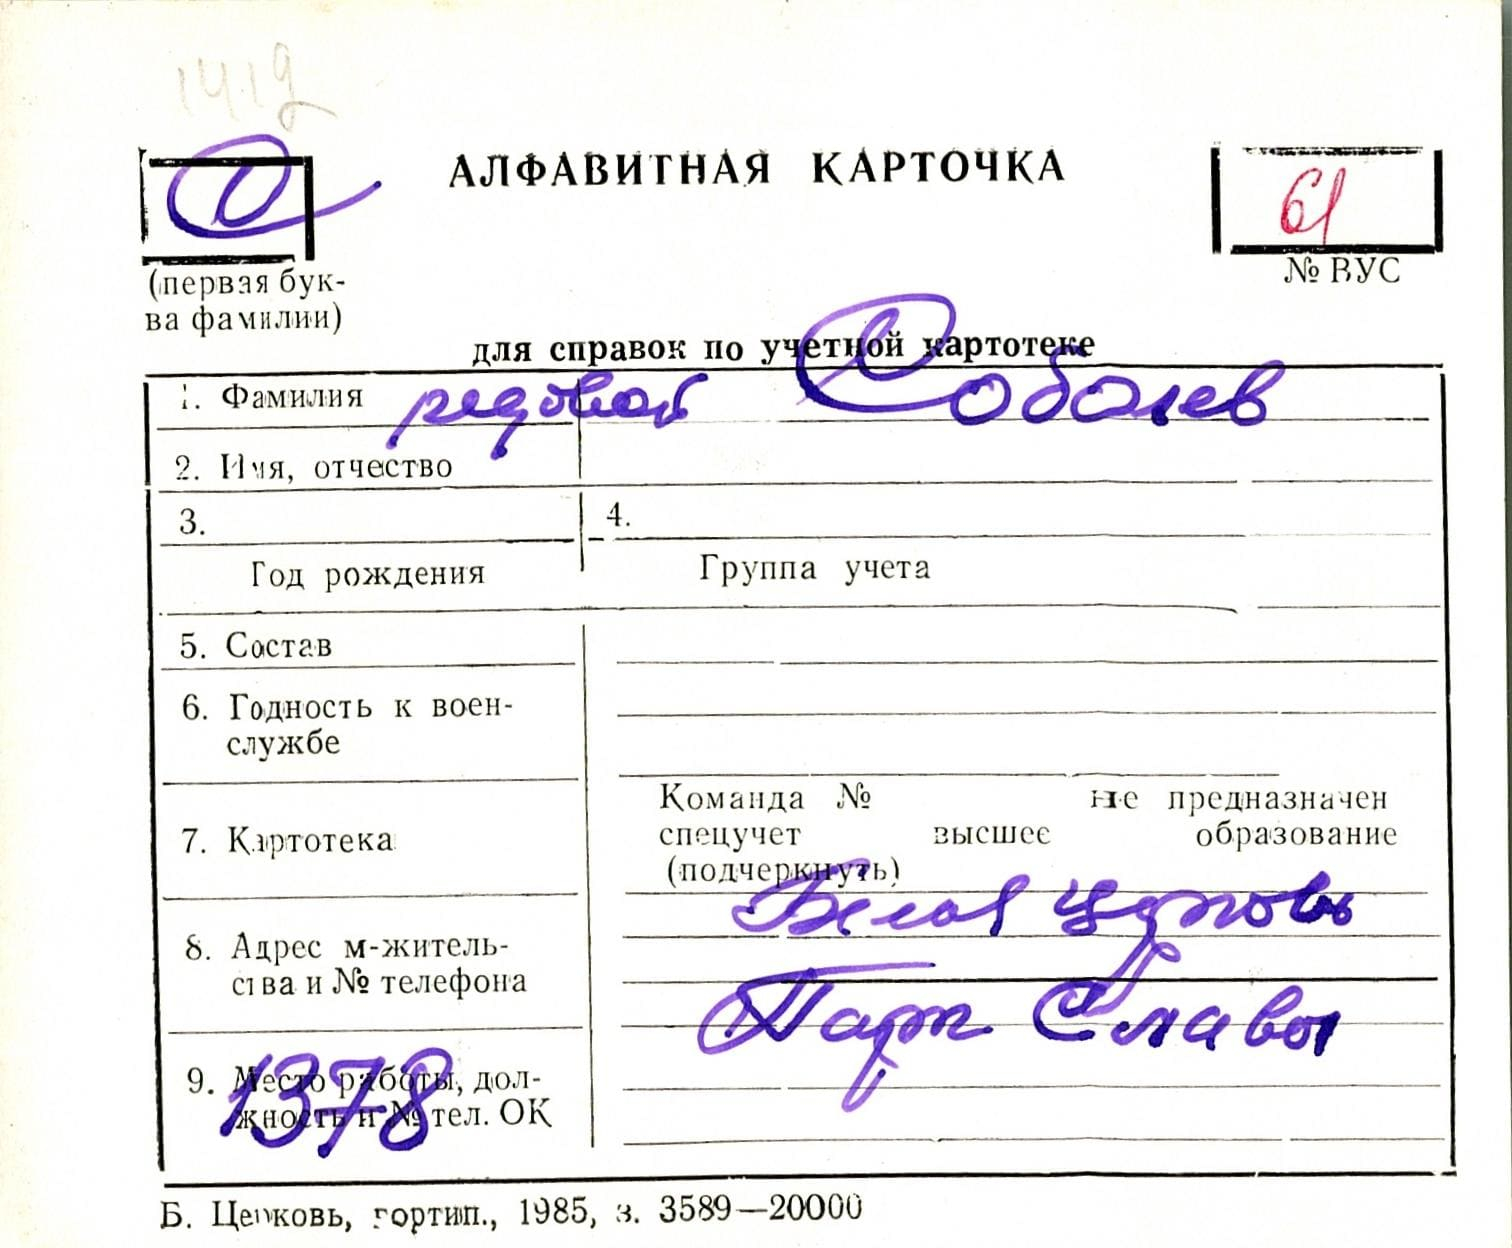 1419
С
АЛФАВИТНАЯ КАРТОЧКА
61
(первая бук-
ва фамилии)
№ ВУС
для справок по учетной картотеке
1. Фамилия рядовой Соболев
2. Имя, отчество
3. 4.
Год рождения Группа учета
5. Состав
6. Годность к воен-
службе
7. Картотека
Команда № не предназначен
спецучет высшее образование
(подчеркнуть)
8. Адрес м-житель-
ства и № телефона
Белая Церковь
Парк Славы
9. Место работы, дол-
жность и № тел. ОК
1378
Б. Церковь, гортип., 1985, з. 3589—20000